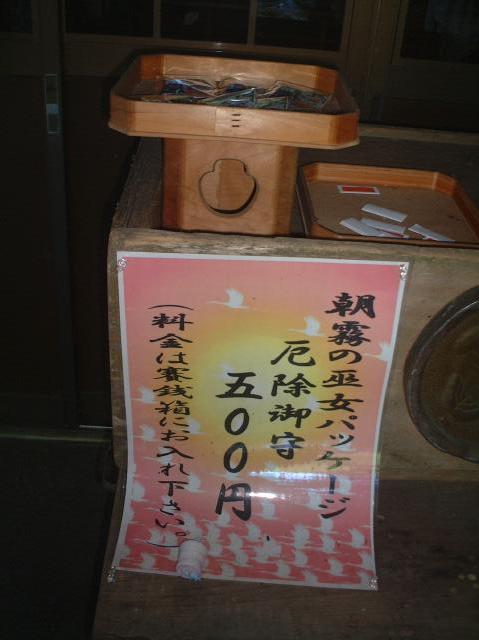 朝霧の巫女パッケージ
厄除御守
五〇〇円
（料金は賽銭箱にお入れ下さい。）